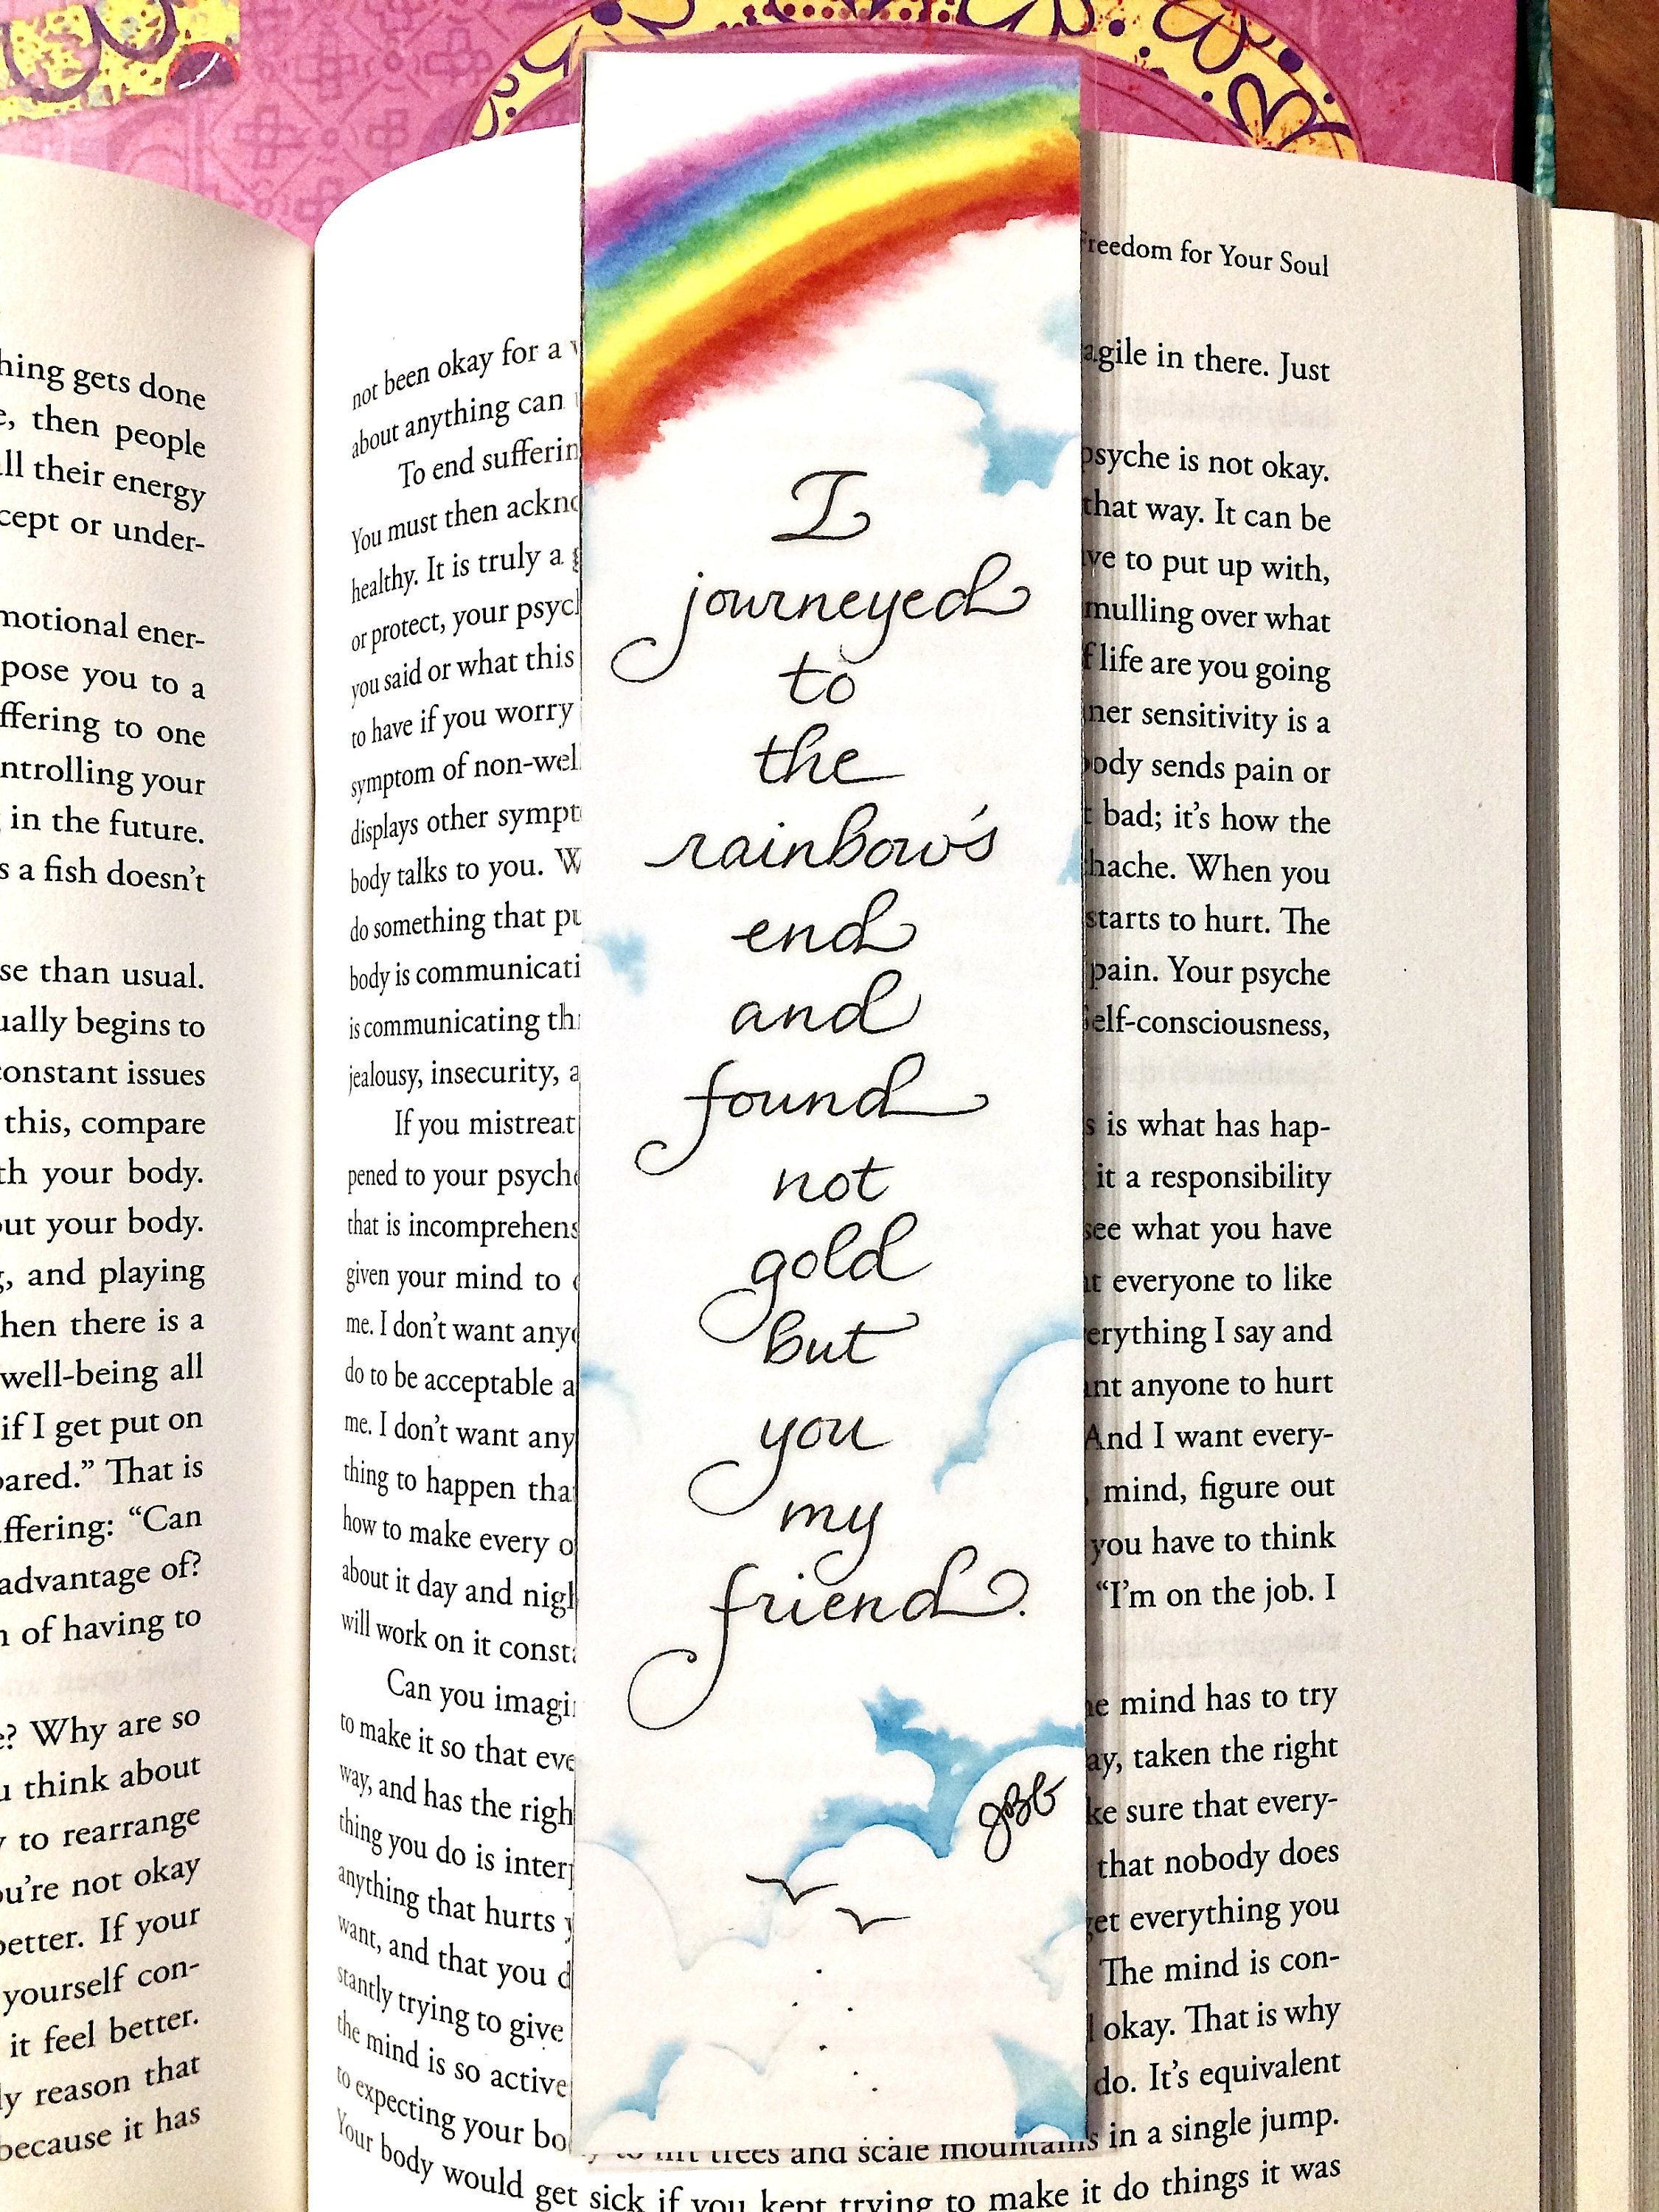 hing gets done
then people
ll their energy
cept or under-
motional ener-
pose you to a
ffering to one
ntrolling your
in the future.
s a fish doesn't
se than usual.
ually begins to
constant issues
this, compare
th your body.
out your body.
and playing
hen there is a
well-being all
if I get put on
pared." That is
ffering: "Can
advantage of?
of having to
? Why are so
think about
to rearrange
ou're not okay
better. If your
yourself con-
it feel better.
ly reason that
because it has
Freedom for Your Soul
not been okay for a
agile in there. Just
about anything can
To end sufferin
psyche is not okay.
You must then ackno
that way. It can be
healthy. It is truly a
ve to put up with,
or protect, your psycl
mulling over what
you said or what this
f life are you going
to have if you worry
ner sensitivity is a
symptom of non-wel
body sends pain or
displays other sympt
bad; it's how the
body talks to you. W
hache. When you
do something that pu
starts to hurt. The
body is communicati
pain. Your psyche
is communicating th
Self-consciousness,
jealousy, insecurity, a
If you mistreat
s is what has hap-
pened to your psyche
it a responsibility
that is incomprehens
see what you have
given your mind to
t everyone to like
me. I don't want anyo
erything I say and
do to be acceptable a
nt anyone to hurt
me. I don't want any
And I want every-
thing to happen tha
mind, figure out
how to make every o
you have to think
about it day and nigh
"I'm on the job. I
will work on it consta
Can you imagi
he mind has to try
to make it so that eve
ay, taken the right
way, and has the righ
ke sure that every-
thing you do is inter
that nobody does
anything that hurts y
get everything you
want, and that you d
The mind is con-
stantly trying to give
okay. That is why
the mind is so active
do. It's equivalent
to expecting your bo
y to lift trees and scale mountains in a single jump.
Your body would get sick if you kept trying to make it do things it was
I
journeyed
to
the
rainbow's
end
and
found
not
gold
but
you
my
friend.
JBG